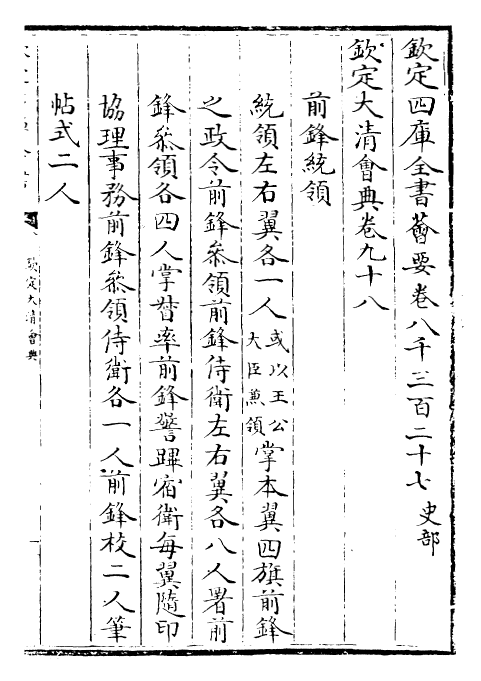 欽定四庫全書薈要卷八千三百二十七 史部
欽定大清會典卷九十八
前鋒統領
統領左右翼各一人或以王公大臣兼領掌本翼四旗前鋒
之政令前鋒叅領前鋒侍衛左右翼各八人署前
鋒叅領各四人掌督率前鋒警蹕宿衛每翼隨印
協理事務前鋒叅領侍衛各一人前鋒校二人筆
帖式二人
欽定大清會典